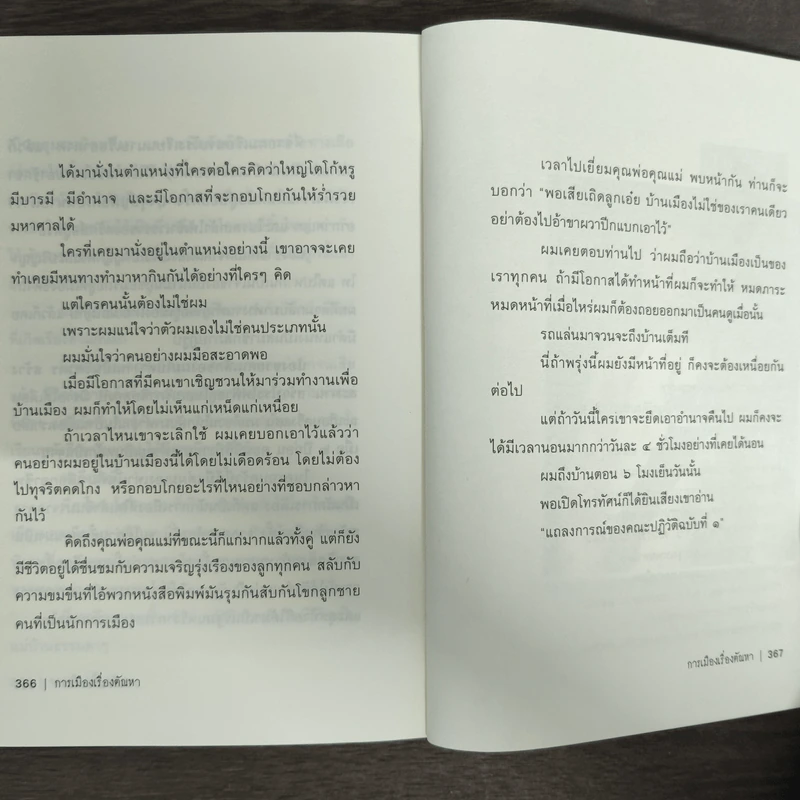 ได้มานั่งในตำแหน่งที่ใครต่อใครคิดว่าใหญ่โตโก้หรู
มีบารมี มีอำนาจ และมีโอกาสที่จะกอบโกยกันให้ร่ำรวย
มหาศาลได้
ใครที่เคยมานั่งอยู่ในตำแหน่งอย่างนี้ เขาอาจจะเคย
ทำเคยมีหนทางทำมาหากินกันได้อย่างที่ใครๆ คิด
แต่ใครคนนั้นต้องไม่ใช่ผม
เพราะผมแน่ใจว่าตัวผมเองไม่ใช่คนประเภทนั้น
ผมมั่นใจว่าคนอย่างผมมือสะอาดพอ
เมื่อมีโอกาสที่มีคนเขาเชิญชวนให้มาร่วมทำงานเพื่อ
บ้านเมือง ผมก็ทำให้โดยไม่เห็นแก่เหน็ดแก่เหนื่อย
ถ้าเวลาไหนเขาจะเลิกใช้ ผมเคยบอกเอาไว้แล้วว่า
คนอย่างผมอยู่ในบ้านเมืองนี้ได้โดยไม่เดือดร้อน โดยไม่ต้อง
ไปทุจริตคดโกง หรือกอบโกยอะไรที่ไหนอย่างที่ชอบกล่าวหา
กันไว้
คิดถึงคุณพ่อคุณแม่ที่ขณะนี้ก็แก่มากแล้วทั้งคู่ แต่ก็ยัง
มีชีวิตอยู่ได้ชื่นชมกับความเจริญรุ่งเรืองของลูกทุกคน สลับกับ
ความขมขื่นที่ไอ้พวกหนังสือพิมพ์มันรุมกันสับกันโขกลูกชาย
คนที่เป็นนักการเมือง
366 | การเมืองเรื่องตัณหา
เวลาไปเยี่ยมคุณพ่อคุณแม่ พบหน้ากัน ท่านก็จะ
บอกว่า "พอเสียเถิดลูกเอ๋ย บ้านเมืองไม่ใช่ของเราคนเดียว
อย่าต้องไปอ้าขาผวาปีกแบกเอาไว้"
ผมเคยตอบท่านไป ว่าผมถือว่าบ้านเมืองเป็นของ
เราทุกคน ถ้ามีโอกาสได้ทำหน้าที่ผมก็จะทำให้ หมดภาระ
หมดหน้าที่เมื่อไหร่ผมก็ต้องถอยออกมาเป็นคนดูเมื่อนั้น
รถแล่นมาจวนจะถึงบ้านเต็มที
นี่ถ้าพรุ่งนี้ผมยังมีหน้าที่อยู่ ก็คงจะต้องเหนื่อยกัน
ต่อไป
แต่ถ้าวันนี้ใครเขาจะยึดเอาอำนาจคืนไป ผมก็คงจะ
ได้มีเวลานอนมากกว่าวันละ ๔ ชั่วโมงอย่างที่เคยได้นอน
ผมถึงบ้านตอน ๖ โมงเย็นวันนั้น
พอเปิดโทรทัศน์ก็ได้ยินเสียงเขาอ่าน
"แถลงการณ์ของคณะปฏิวัติฉบับที่ ๑"
การเมืองเรื่องตัณหา | 367